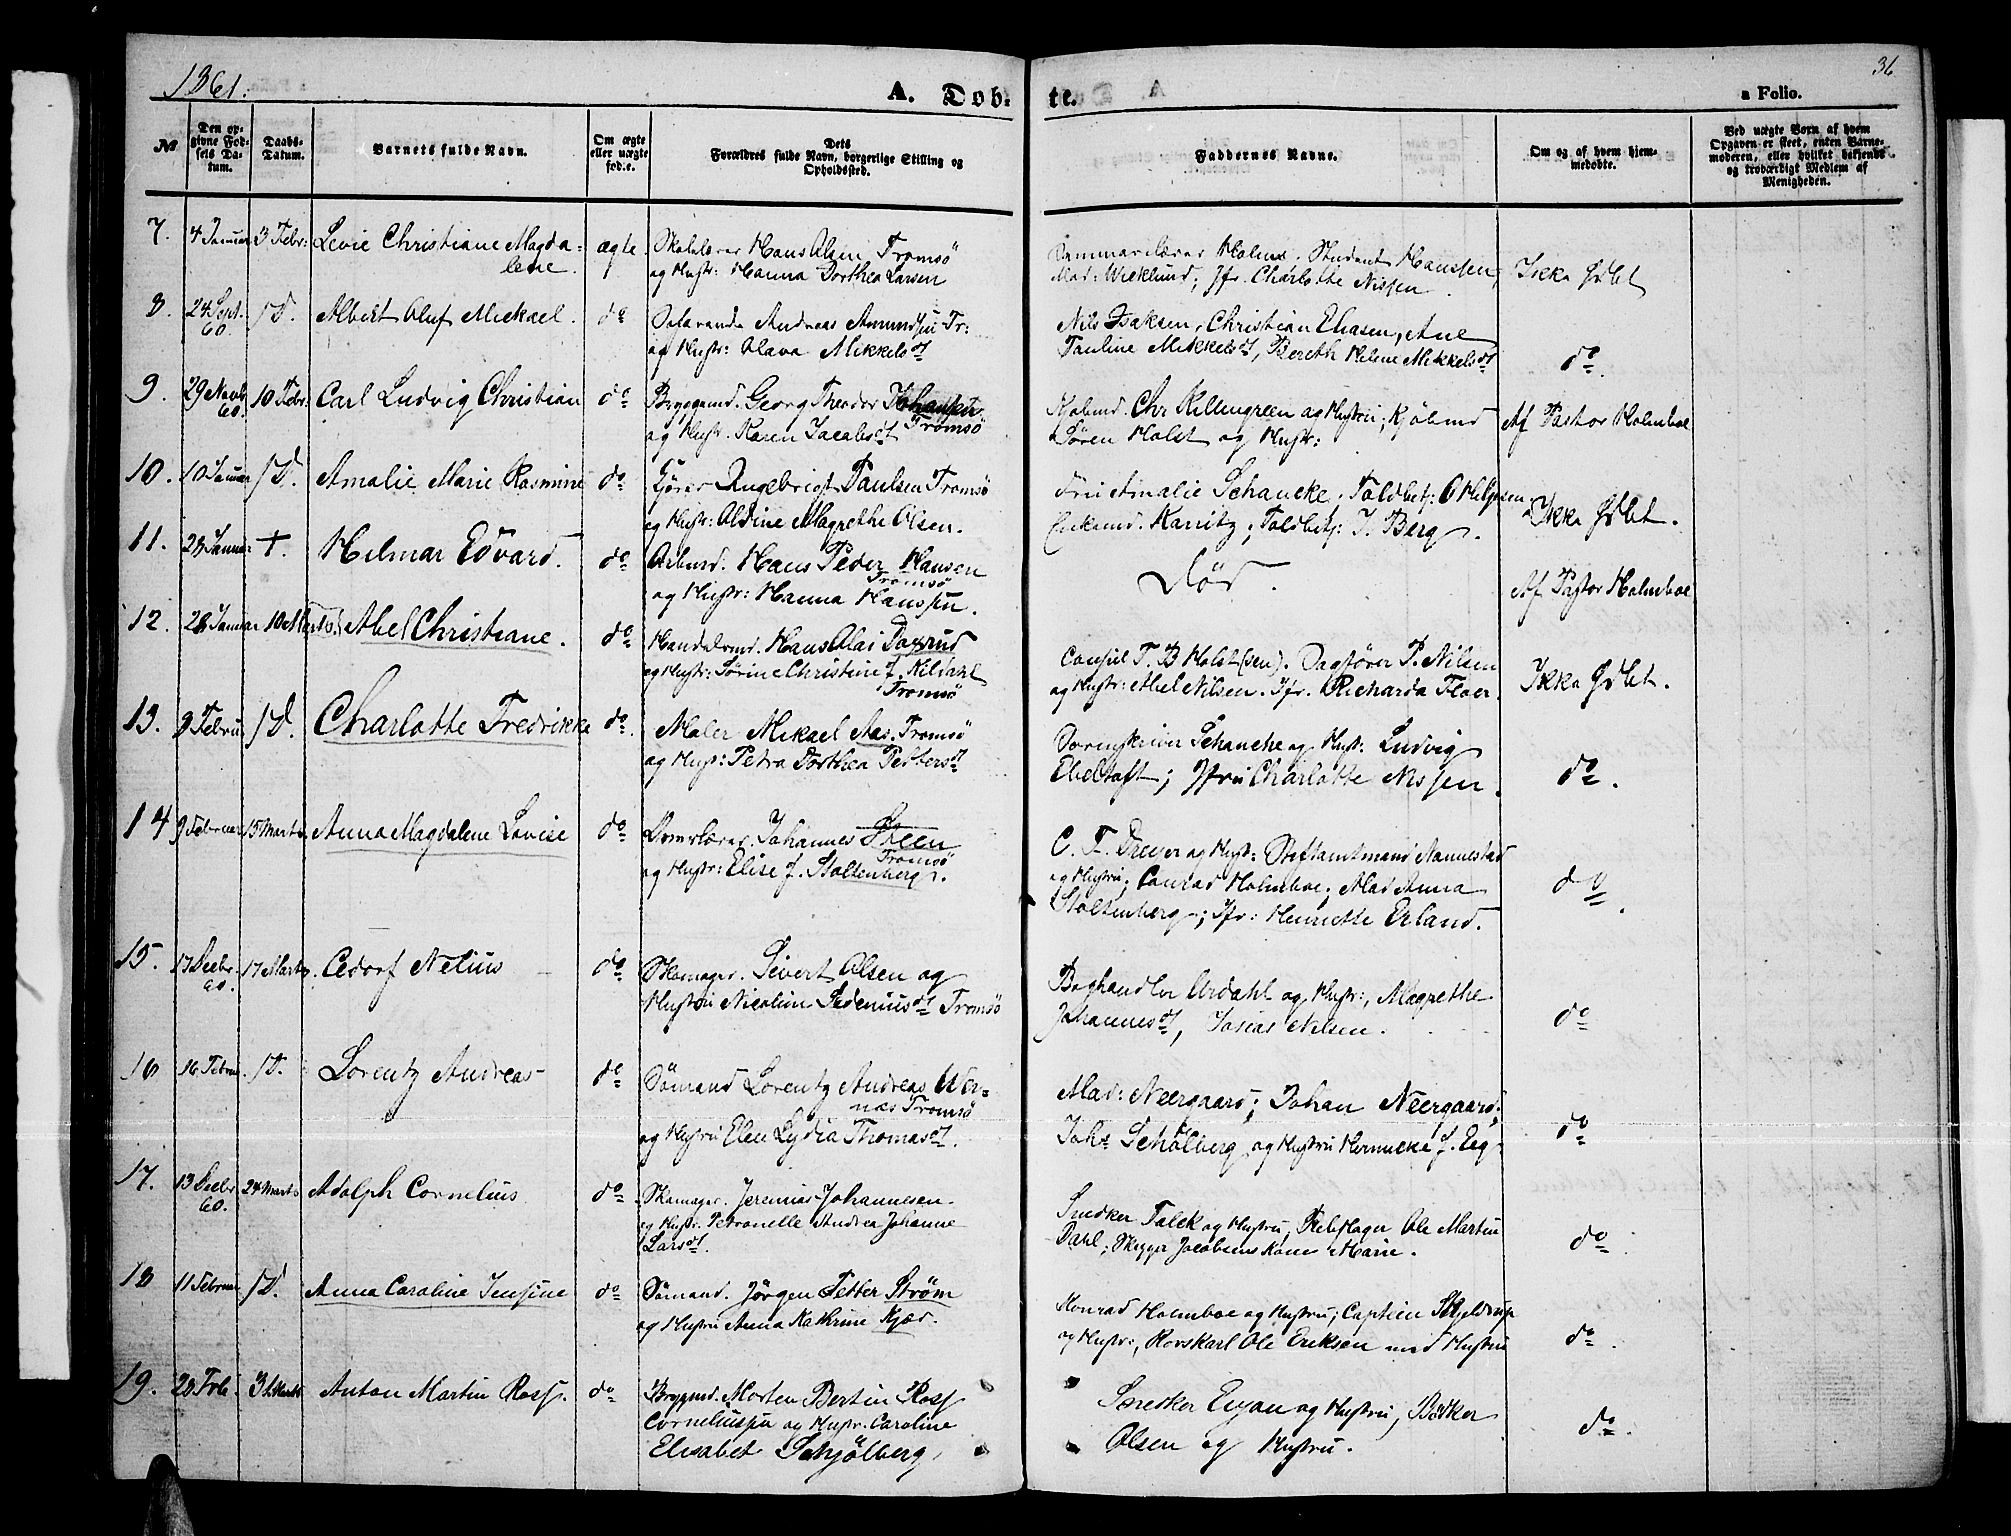 1861.
A. Døbte.
a Folio.
36
№
Den opgivne Fødsels Datum.
Daabs-Datum.
Barnets fulde Navn.
Om ægte eller uægte fød.e.
Dets Forældres fulde Navn, borgerlige Stilling og Opholdssted.
Faddernes Navne.
Om og af hvem hjemmedøbte.
Ved uægte Børn af hvem Opgaven er skeet, enten Barnemoderen, eller hvilket bekjendt og troværdigt Medlem af Menigheden.
7. 4 Januar 3 Febr: Levie Christiane Magda-
lene. ægte Skolelærer Hans Olsen Tromsö
og Hustr: Hanna Dorthea Larsen
Seminarelærer Holme. Student Hanssen,
Mad: Wicklund; Jfr. Charlotte Nissen. Ikke Døbt
8. 24 Sept. 60. D. Albert Oluf Mickael. do Andreas Amundsen Tr:
og Hustr: Olava Mikkelsdt
Nils Isaksen, Christian Eliasen, Ane
Pauline Mikkelsdt, Bereth Helene Mikkelsdt do.
9. 29 Novb 60. 10 Febr. Carl Ludvig Christian do Byggemd. Georg Theodor Johansen
Tromsö
og Hustr. Karen Jacobsdt
Kjøbmd. Chr Killengreen og Hustru; Kjöbmd
Søren Holst og Hustr: Af Pastor Holmboe
10. 10 Januar D. Amalie Marie Rasmine do Ingebrigt Paulsen Tromsö
og Hustr: Aldine Magrethe Olsen.
Fru Amalie Schancke. Toldbetj: O Nilssen
Kanitz; Toldbetj: J. Berg. Ikke Døbt.
11. 28 Januar †. Hilmar Edvard. do Arbmd. Hans Peder Hansen
Tromsö
og Hustr: Hanna Hanssen.
Død. Af Pastor Holmboe
12. 28 Januar 10 Marts. Abel Christiane. do Handelsmd. Hans Olai Daxrud
og Hustr: Sørine Christine f. Kildahl
Tromsö
Consul T. B Holst (sen). Sagfører P. Nilsen
og Hustr: Abel Nilsen. Jfr. Richarda Floer. Ikke Døbt.
13. 8 Februar D. Charlotte Fredrikke do. Maler Mikael Aas. Tromsö
og Hustr: Petra Dorthea Pettersdt
Sorenskriver Schancke og Hustr: Ludvig
Ebeltoft; Jfru Charlotte Nissen. do.
14 9 Februar 15 Marts Anna Magdalene Lovise do Johannes Steen
Tromsö
og Hustr: Elise f. Stoltenberg.
C. F. Dreyer og Hustr: Stiftamtmand Nannestad
og Hustru; Conrad Holmboe; Mad Anna
Stoltenberg; Jfr: Henriette Erland. do.
15. 17 Decbr. 60. 17 Marts. Cedorf Nelius do Skomager. Sivert Olsen og
Hustru Nicoline Tromsö
Boghandler Urdahl og Hustr:, Magrethe
Johannesdt, Josias Nilsen. do
16 16 Februar D. Lorentz Andreas do Sömand Lorentz Andreas Wer-
næs Tromsö
og Hustru Elen Lydia Thomasdt.
Mad: Neergaard; Johan Neergaard;
Johs Schølberg og Hustru f. Eeg. do
17. 13 Decbr 60. 24 Marts Adolph Cornelius do Skomager. Jeremias Johannesen
og Hustr. Petronelle Andrea Johanne
Larsdt.
Snedker Falck og Hustru, Ole Martin
Dahl; Jacobsens Kone Marie. do.
18 11 Februar D. Anna Caroline Jensine do Sömand. Jörgen Petter Ström
og Hustru Anna Kathrine Kjær.
Konrad Holmboe og Hustru; Captein Skjeldrup
og Hustr:, Ole Eriksen med Hustru do.
19. 28 Feb. 31 Marts Anton Martin Ross. do Byggmd. Morten Bertin Ross
Corneliussen og Hustr. Caroline
Elisabet Schjölberg,
Snedker og Hustru, Bödker
Olsen og Hustru. do.